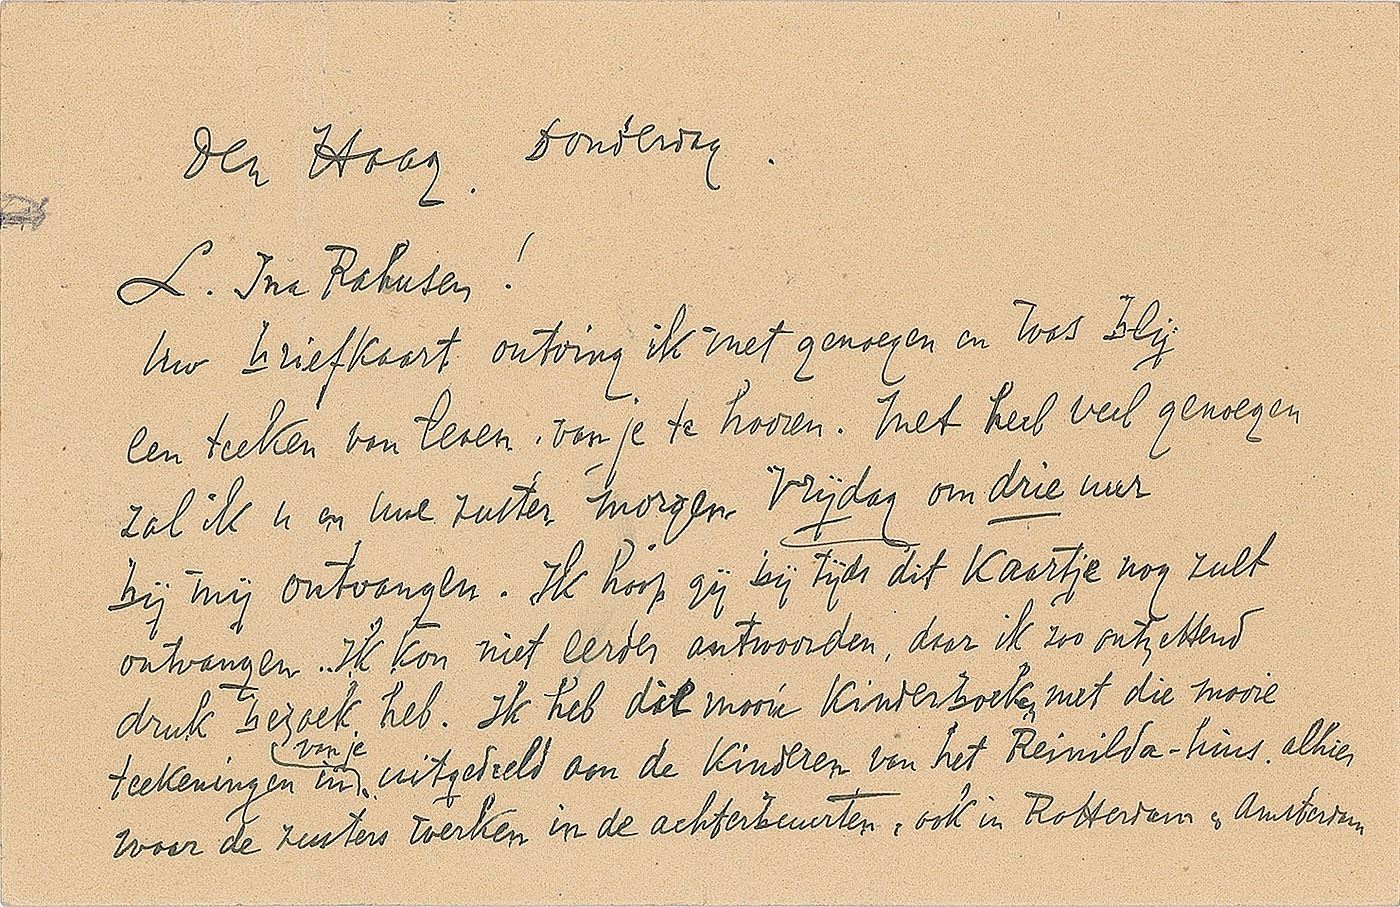 Den Haag. Donderdag.
L. Ina Rahusen!
Uw briefkaart ontving ik met genoegen en was blij
een teeken van leven van je te hooren. Met heel veel genoegen
zal ik u en uwe zuster morgen Vrijdag om drie uur
bij mij ontvangen. Ik hoop gij bij tijds dit Kaartje nog zult
ontvangen. Ik kon niet eerder antwoorden, daar ik zoo ontzettend
druk bezoek heb. Ik heb die mooie Kinderboeken met die mooie
teekeningen van je in, uitgedeeld aan de Kinderen van het Reinilda-huis. alhier
waar de zusters werken in de achterbuurten, ook in Rotterdam & Amsterdam